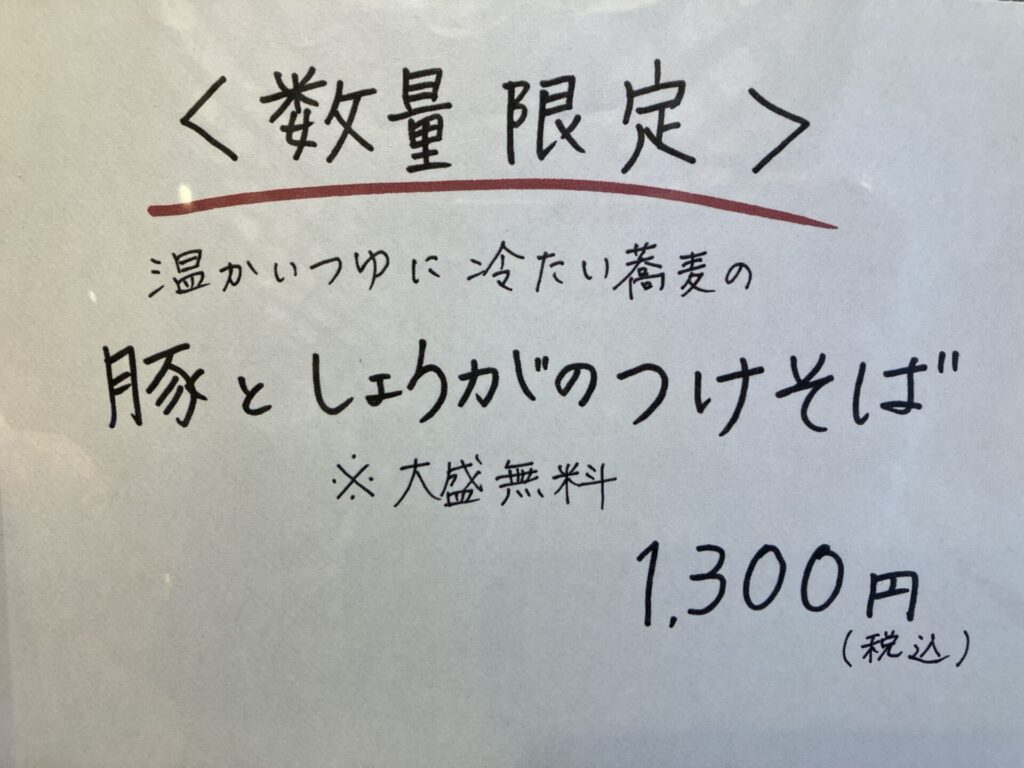 <数量限定>
温かいつゆに冷たい蕎麦の
豚としょうがのつけそば
※大盛無料
1,300円
(税込)